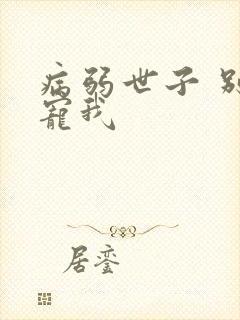 病弱世子 别
宠我
居銮